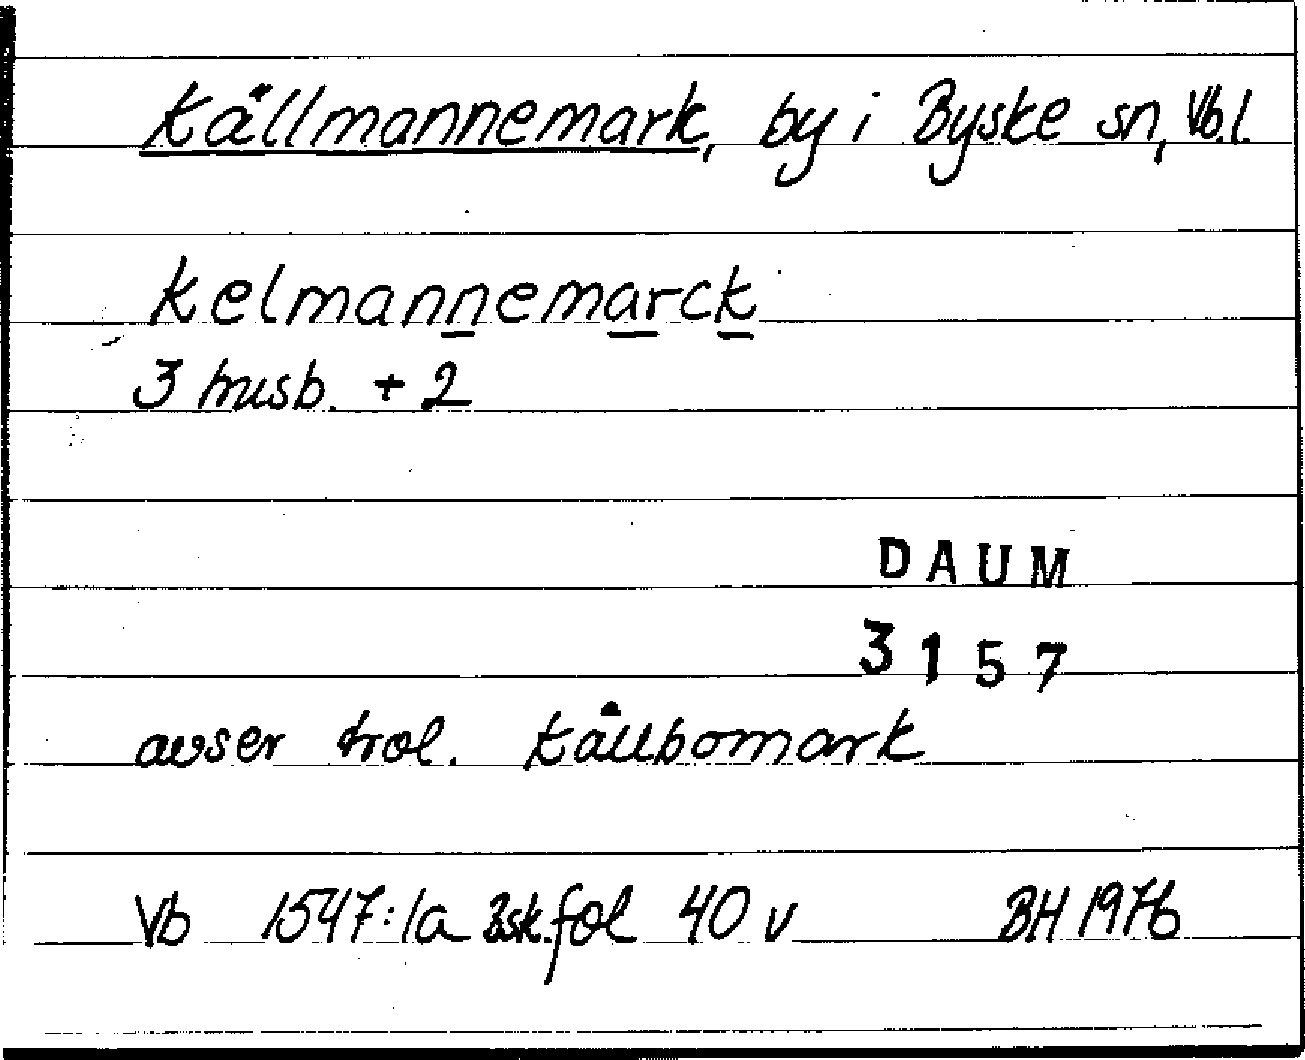 Källmannemark, by i Byske sn, Vb.l.
Kelmannemarck
3 husb. + 2
DAUM
3157
avser trol. Källbomark
Vb 1547:1a Bsk.fol 40 v BH 1976